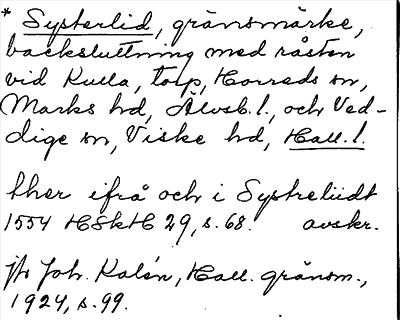 * Systerlid, gränsmärke,
backsluttning med råsten
vid Kulla, torp, Horreds sn,
Marks hd, Älvsb. l., och Ved-
dige sn, Viske hd, Hall. l.
ther ifrå och i Systreliidt
1554 HSkH 29, s. 68. avskr.
jfr Joh. Kalén, Hall. gränsm.,
1924, s. 99.